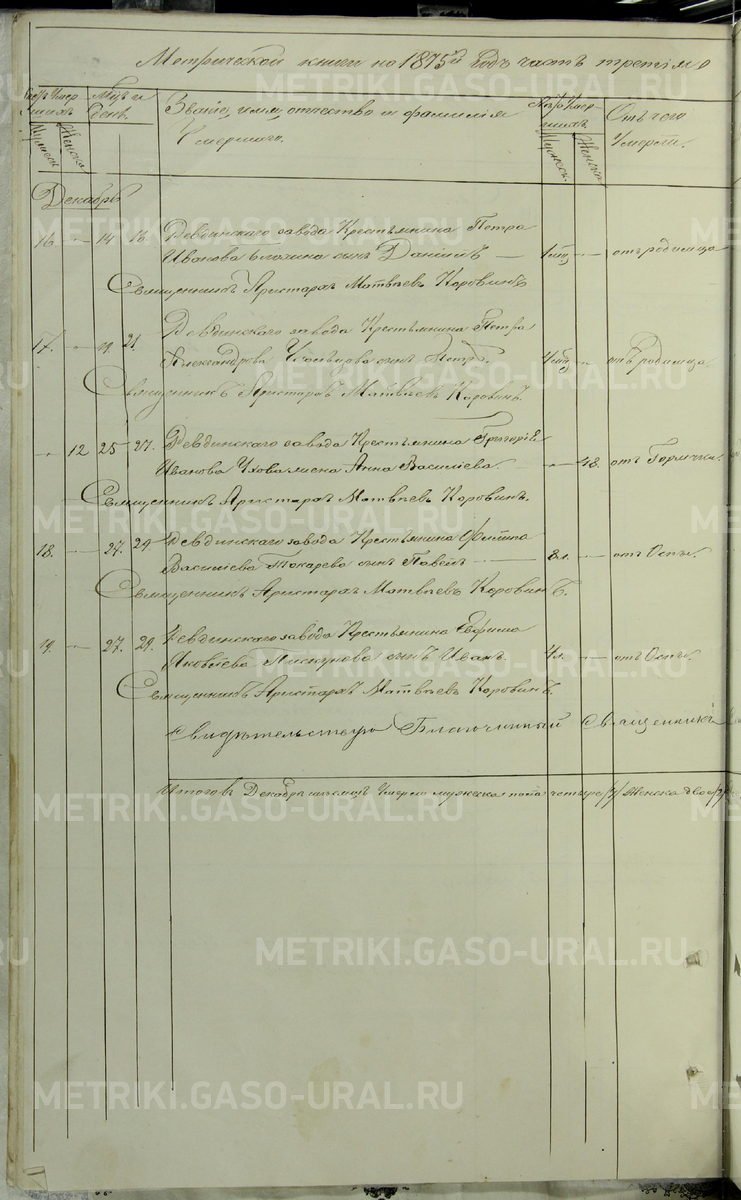 Метрической книги на 1875й Годъ часть третія о
Счетъ Умер
шихъ
Мѣсяцъ и
день.
Званіе, имя, отчество и фамилія
Умершаго.
Лѣта Умер
шихъ.
Отъ чего
Умерли.
Мужеск. Женска. Мужеск. Женска.
Декабрь
16. 14 16. Ревдинскаго завода Крестьянина Петра
Иванова сынъ Даніилъ 1 мѣс отъ родимца
Священникъ Аристархъ Матвѣевъ Коровинъ
17. 19. 21. Ревдинскаго завода Крестьянина Петра
Александрова сынъ Петръ. 4 мѣс отъ родимца.
Священникъ Аристархъ Матвѣевъ Коровинъ.
12 25 27. Ревдинскаго завода Крестьянина Григорія
Иванова жена Анна Василіева. 48. отъ Горячки.
Священникъ Аристархъ Матвѣевъ Коровинъ.
18. 27. 29 Ревдинскаго завода Крестьянина Филипа
Василіева Токарева сынъ Павелъ 8 л. отъ Оспы.
Священникъ Аристархъ Матвѣевъ Коровинъ.
19. 27. 29. Ревдинскаго завода Крестьянина Ефима
Яковлева Пискунова сынъ Иванъ. 4 л. отъ Оспы.
Священникъ Аристархъ Матвѣевъ Коровинъ.
Свидѣтельствую Благочинный Священникъ
Итого въ Декабрѣ мѣсяцѣ Умерло мужеска пола четыре /4/ Женска двое /2/
METRIKI.GASO-URAL.RU